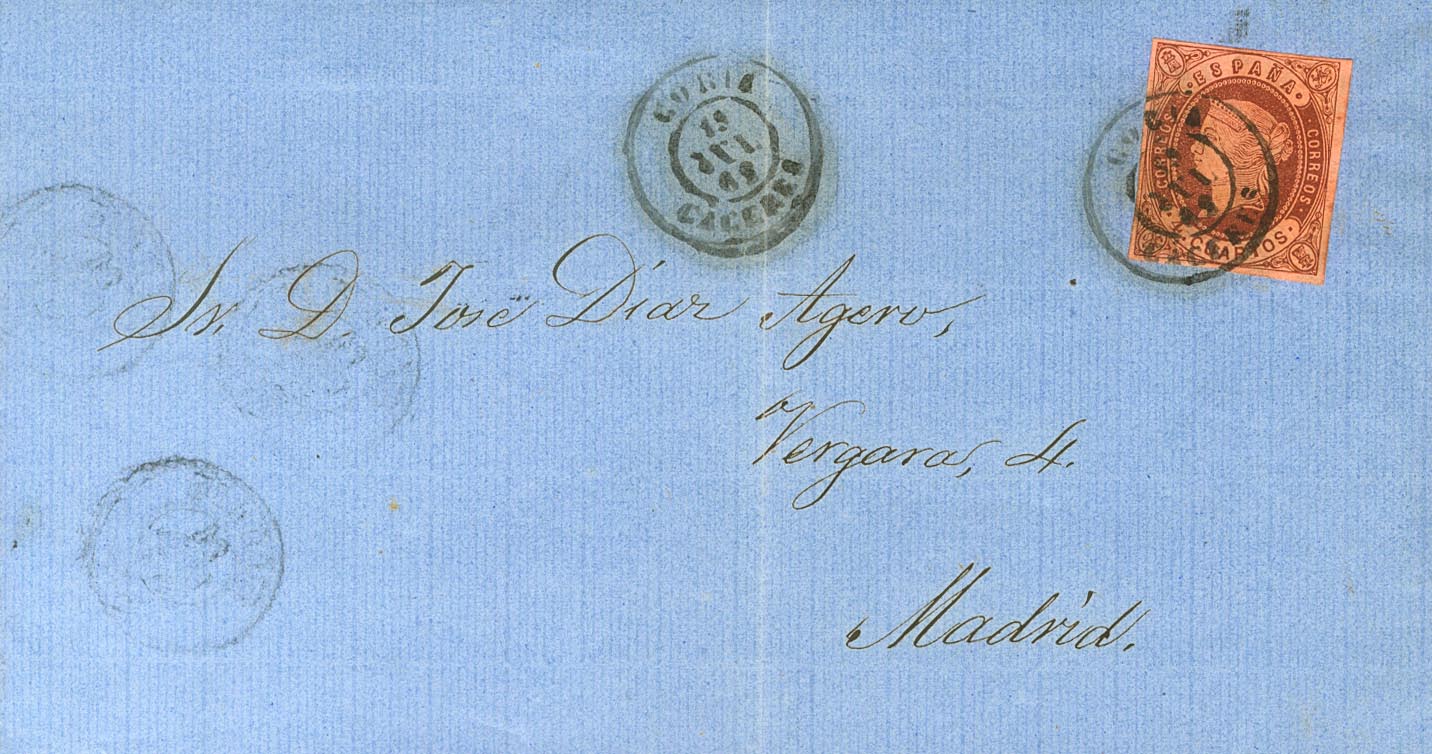 CORIA
JUL
CACERES
·ESPAÑA·
CORREOS.
CORREOS.
CUARTOS.
Sr. D. José Díaz Agero,
Vergara, 4.
Madrid.